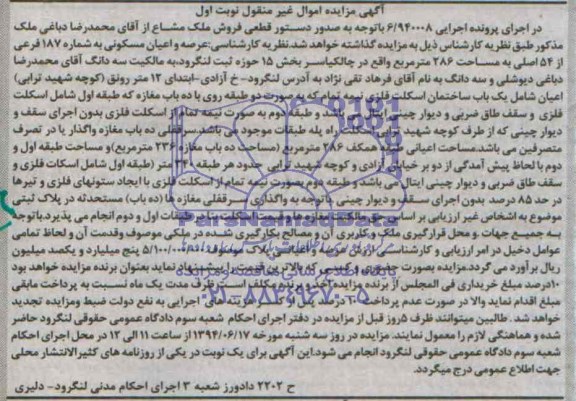 آگهی مزایده اموال غیر منقول نوبت اول
در اجرای پرونده اجرایی ۶/۹۴۰۰۰۸ باتوجه به صدور دستور قطعی فروش ملک مشاع از آقای محمدرضا دباغی ملک
مذکور طبق نظریه کارشناس ذیل به مزایده گذاشته خواهد شد.نظریه کارشناسی:عرصه و اعیان مسکونی به شماره ۱۸۷ فرعی
از ۵۴ اصلی به مساحت ۲۸۶ مترمربع واقع در چالکیاسر بخش ۱۵ حوزه ثبت لنگرود،به مالکیت سه دانگ آقای محمدرضا
دباغی دیوشلی و سه دانگ به نام آقای فرهاد تقی نژاد به آدرس لنگرود- خ آزادی-ابتدای ۱۲ متر رونق (کوچه شهید ترابی)
اعیان شامل یک باب ساختمان اسکلت فلزی نیمه تمام که به صورت دو طبقه روی با ده باب مغازه که طبقه اول شامل اسکلت
فلزی و سقف طاق ضربی و دیوار چینی میباشد و طبقه دوم به صورت نیمه تمام از اسکلت فلزی بدون اجرای سقف و
دیوار چینی که از طرف کوچه شهید ترابی اسکلت راه پله طبقات موجود می باشد.سرقفلی ده باب مغازه واگذار یا در تصرف
متصرفین می باشد.مساحت اعیانی طبقه همکف ۲۸۶ مترمربع (مساحت ده باب مغازه ۲۳۶ مترمربع)و مساحت طبقه اول و
دوم با لحاظ پیش آمدگی از دو بر خیابان آزادی و کوچه شهید ترابی حدود هر طبقه متر (طبقه اول شامل اسکلت فلزی و
سقف طاق ضربی و دیوار چینی می باشد و طبقه دوم بصورت نیمه تمام از اسکلت فلزی با ایجاد ستونهای فلزی و تیرها
در حد ۸۵ درصد بدون اجرای سقف و دیوار چینی باتوجه به واگذاری سرقفلی مغازه ها (ده باب) مستحدثه در پلاک ثبتی
موضوع به اشخاص غیر ارزیابی بر اساس حق مالکیت مغازه ها و اسکلت بنا در طبقات اول و دوم انجام می پذیرد.باتوجه
به جمیع جهات و محل قرارگیری ملک و کاربری آن و مصالح بکارگیری شده در ملکی موصوف وقدمت آن و لحاظ تمامی
عوامل دخیل در امر ارزیابی و کارشناسی ارزش عرصه و اعیان پلاک موصوف پنج میلیارد و یکصد میلیون
ریال برآورد می گردد.مزایده بصورت حضوری و کسی که بالاترین قیمت را پیشنهاد نماید بعنوان برنده مزایده خواهد بود
۱۰درصد مبلغ خریداری فی المجلس از برنده مزایده اخذ و برنده مکلف است ظرف مدت یک ماه نسبت به پرداخت مابقی
مبلغ اقدام نماید والا در صورت عدم پرداخت هزینه های اجرایی به نفع دولت ضبط ومزایده تجدید
خواهد شد. طالبین میتوانند ظرف ۵روز قبل از مزایده در دفتر اجرای احکام شعبه سوم دادگاه عمومی حقوقی لنگرود حاضر
شده و هماهنگی لازم را معمول نمایند. مزایده در روز سه شنبه مورخه ۱۳۹۴/۰۶/۱۷ از ساعت ۱۱ الی ۱۲ در محل اجرای احکام
شعبه سوم دادگاه عمومی حقوقی لنگرود انجام می شود.این آگهی برای یک نوبت در یکی از روزنامه های کثیرالانتشار محلی
جهت اطلاع عمومی درج میگردد.
ح ۲۲۰۲ دادورز شعبه ۳ اجرای احکام مدنی لنگرود- دلیری